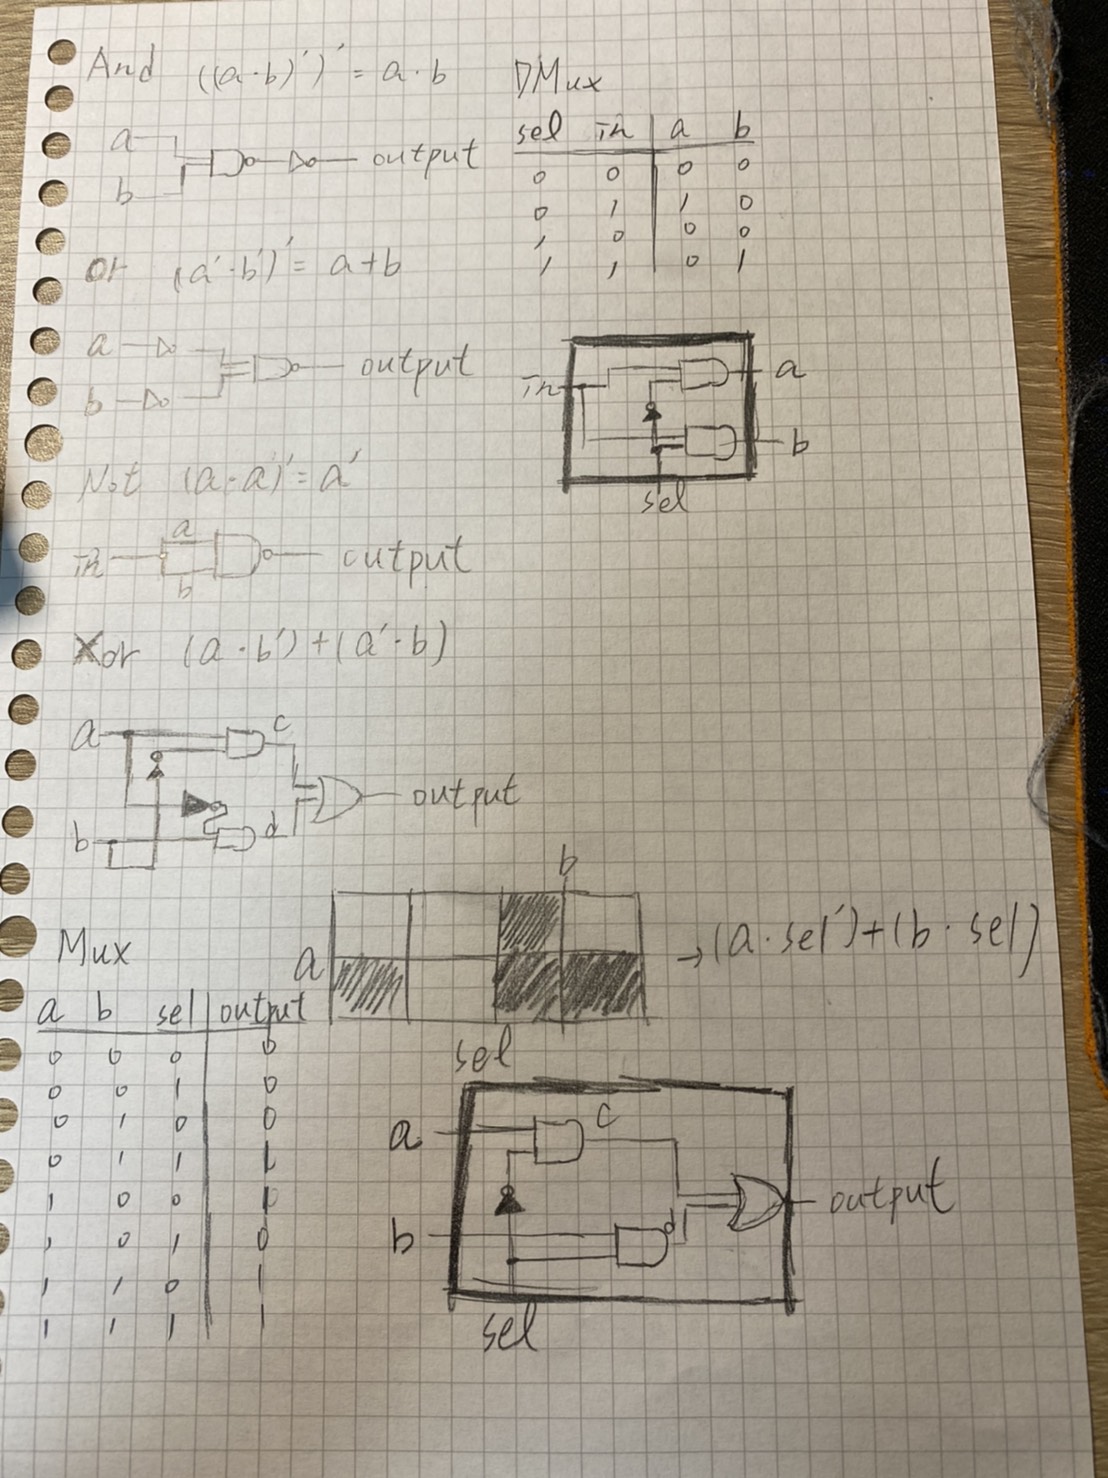 And ((a·b)')' = a·b
a
b
output
or (a'·b')' = a+b
a
b
output
Not (a·a)' = a'
in
a
b
output
Xor (a·b')+(a'·b)
a
b
c
d
output
DMux
sel in a b
0 0 0 0
0 1 1 0
1 0 0 0
1 1 0 1
in
a
b
sel
Mux
a b sel output
0 0 0 0
0 0 1 0
0 1 0 0
0 1 1 1
1 0 0 1
1 0 1 0
1 1 0 1
1 1 1 1
b
a
sel
→(a·sel')+(b·sel)
a
b
c
d
sel
output